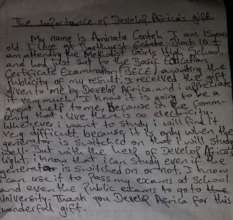 The importance of Develop Africa's gift
My name is Aminata Conteh. I am 15 years
old. I live at
I am attending the Methodist Girls High School,
and had just sat to the Basic Education
Certificate Examination (BECE) awaiting the
publicity of my result. I received the gift
given to me by Develop Africa and I appreciate
it very much. I know it is
good to me. Because in the comm-
unity that I live there is no electricity.
Whenever I want to study I will find it
very difficult because it is only when the
generator is switched on that I will study
But with the help of Develop Africa's
light, I know that I can study even if the
generator is switched on or not. I know
I can use it to pass my exams at School
and even the public exams to go to the
University. Thank you Develop Africa for this
wonderful gift.